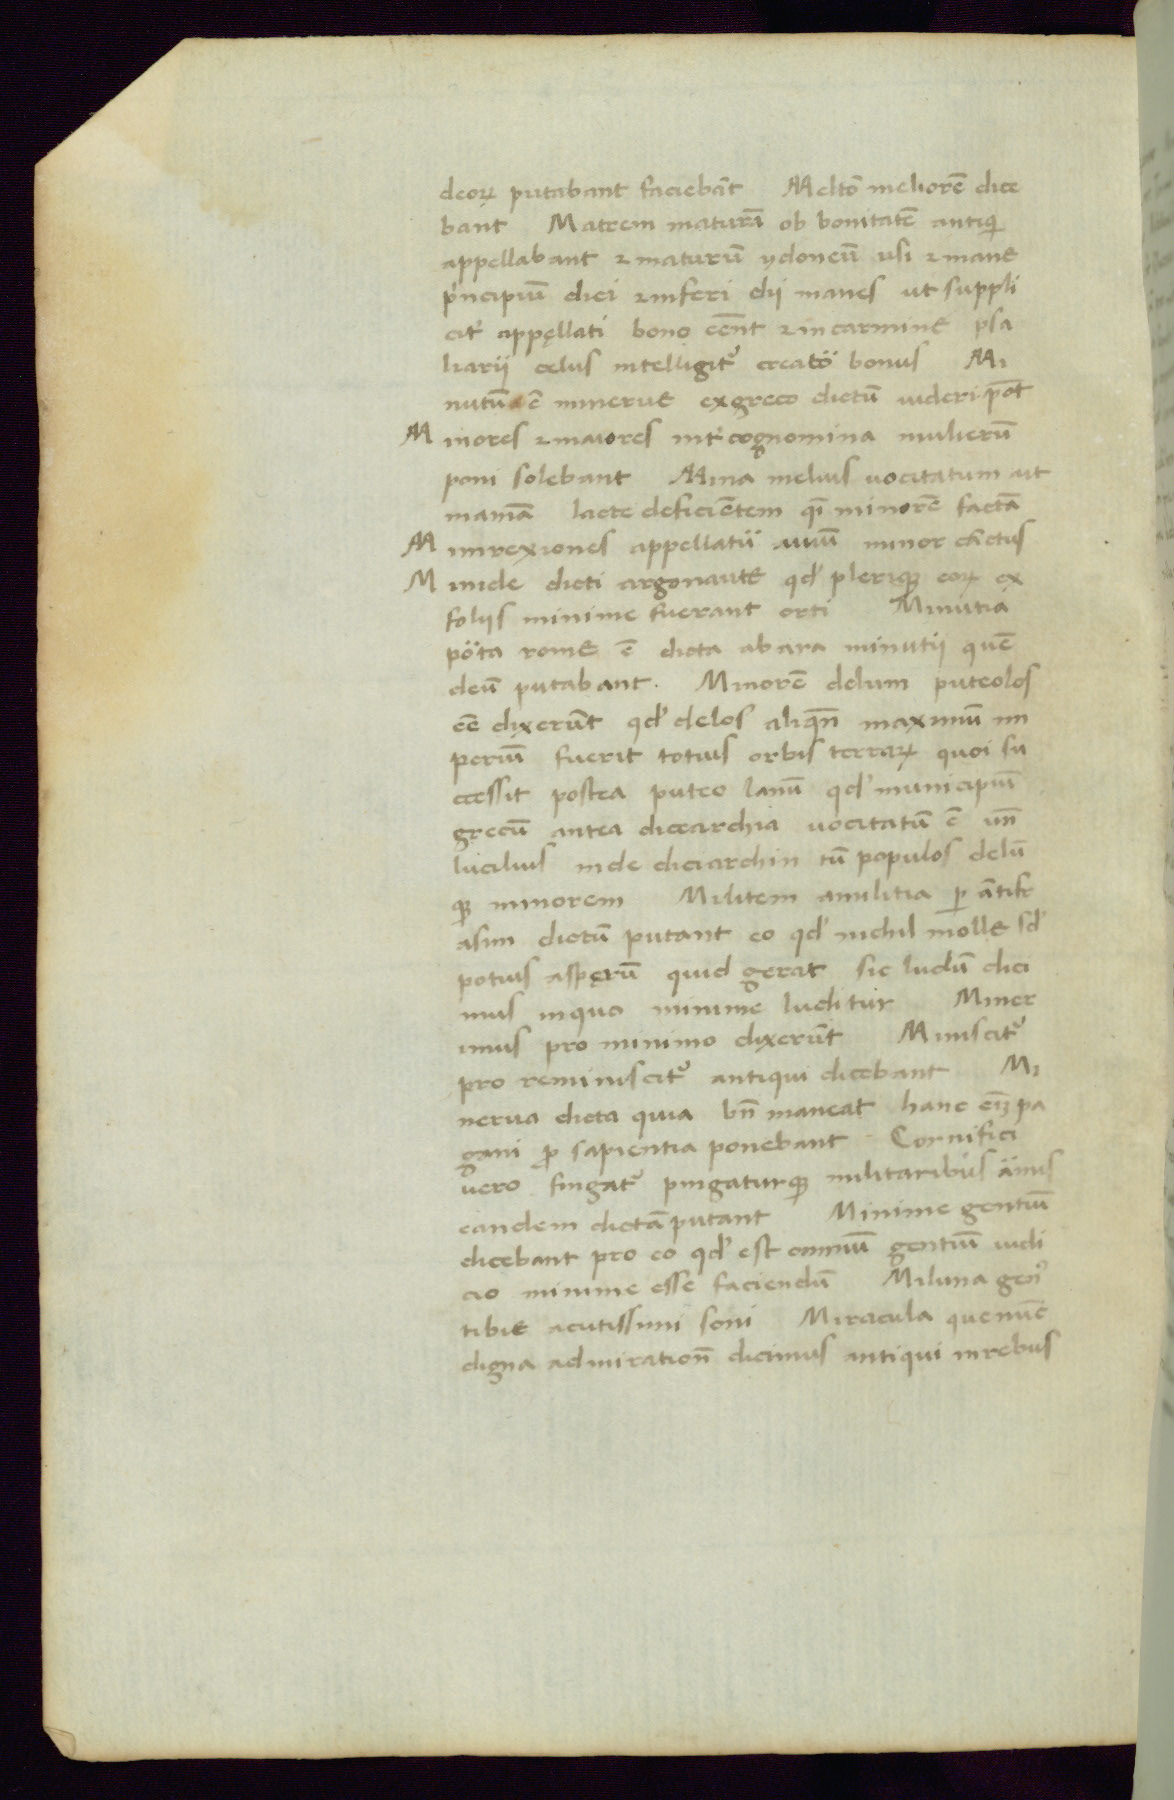 deoꝝ putabant faciebāt Meltō meliorē dice
bant Matrem maturā ob bonitatē antiqͥ
appellabant ⁊ maturū ydoneū usi ⁊ mane
pͥncipiū diei ⁊ inferi dij manes ut suppli
citͥ appęllati bono eēnt ⁊ in carmine psa
liarij celus intelligit᷑ creatoͬ bonus Mi
nutū ē minerue ex greco dictū uideri pōt
Minores ⁊ maiores intͥ cognomina mulierū
poni solebant Mina melius uocitatum ut
mamā lacte deficiētem qͣ minorē factā
Mimrexiones appellatū auiū minor cātus
Minide dicti argonaute qd᷑ pleriqꝫ eoꝝ ex
foliis minime fuerant orti Minutia
poͬta rome ē dicta ab ara minutij quē
deū putabant. Minorē delum puteolos
eē dixerūt qd᷑ delos aliqn̄ maximū im
periū fuerit totius orbis terraꝝ quoi su
ccessit postea puteo lanū qd᷑ municipiū
grecū antea dicearchia uocitatū ē un̄
lucilius inde diciarchin tū populos delū
qꝫ minorem Militem amilitia ꝑ ātifr
asim dictū putant eo qd᷑ nichil molle sd᷑
potius aspęrū quid gerat sic ludū dici
mus inquo minime luditur Miner
imus pro minimo dixerūt Miniscit᷑
pro reminiscit᷑ antiqui dicebant Mi
nerua dicta quia bn̄ moneat hanc eīꝫ pa
gani ꝓ sapientia ponebant Cornifici
uero fingat᷑ pingaturqꝫ militaribus aͬmis
eandem dictā putant Minime gentiū
dicebant pro eo qd᷑ est omniū gentiū iudi
cio minime esse faciendū Miluina gen᷑
tibie acutissimi soni Miracula que nūc
digna admiration̄ dicimus antiqui in rebus